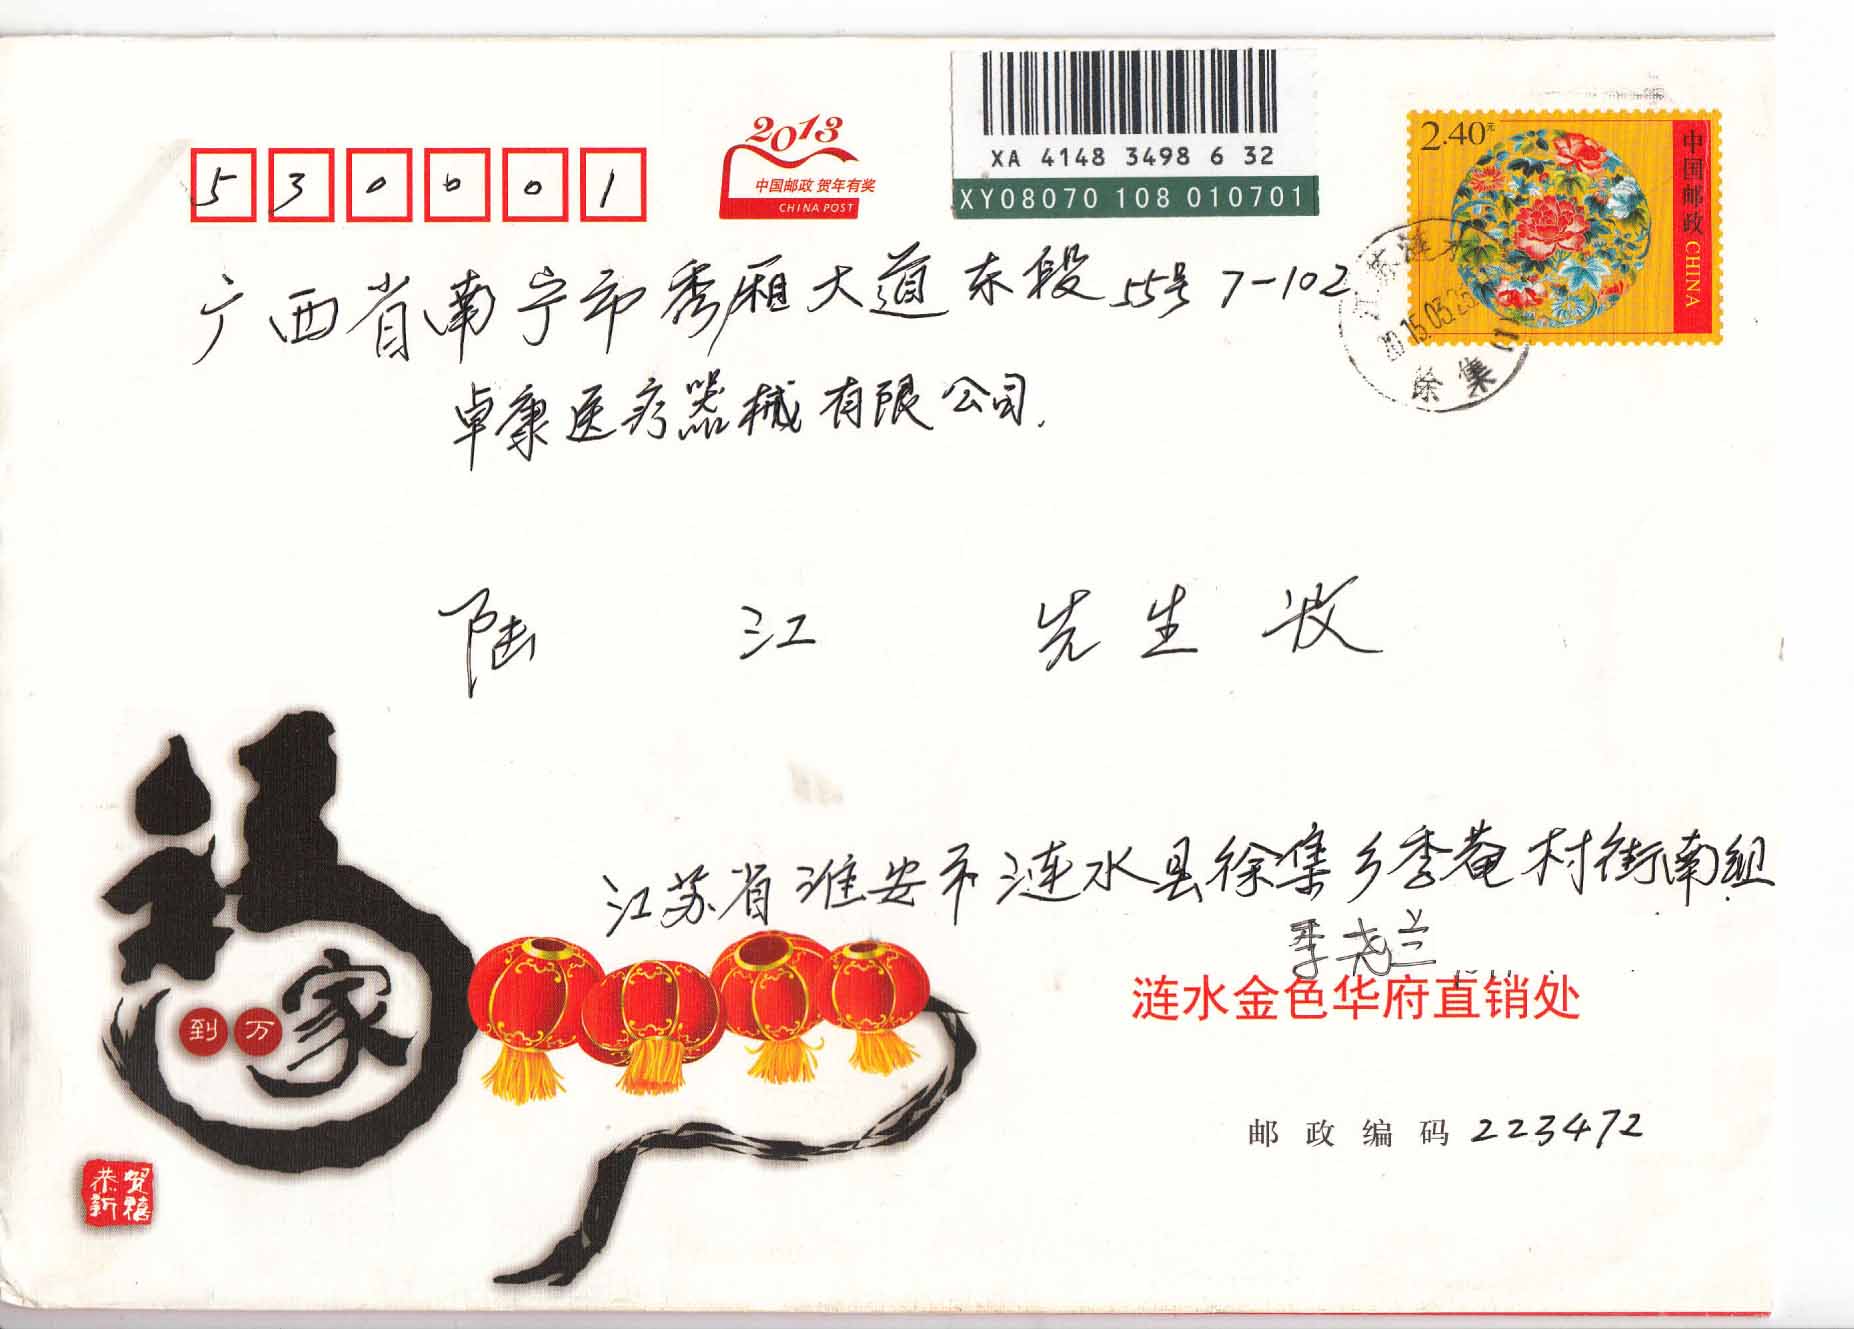 2013
中国邮政 贺年有奖
CHINA POST
XA 4148 3498 6 32
XY08070 108 010701
2.40元
中国邮政 CHINA
530001
江苏涟水
2015.03.23
徐集(1)
广西省南宁市秀厢大道东段55号7-102
卓康医疗器械有限公司.
陆 江 先生 收
福
到万家
恭贺新禧
江苏省淮安市涟水县徐集乡季菴村街南组
季尧兰
涟水金色华府直销处
邮政编码 223472